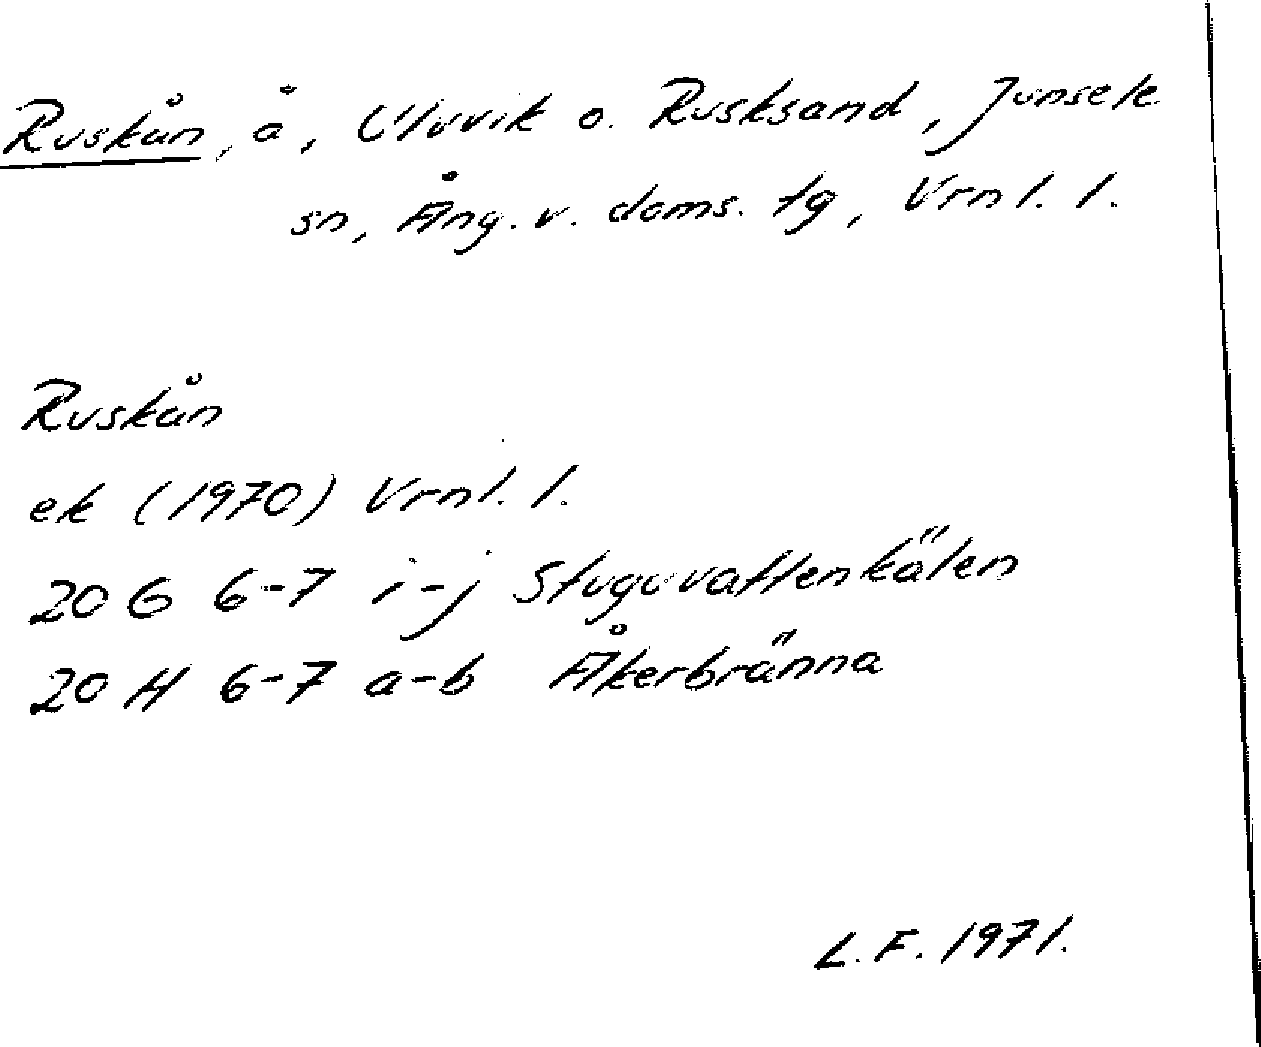 Ruskån, å, Ulvvik o. Rusksand, Junsele
sn, Ång. v. doms. tg, Vrnl. l.
Ruskån
ek (1970) Vrnl. l.
20 G 6-7 i-j Stuguvattenkälen
20 H 6-7 a-b Åkerbränna
L. F. 1971.